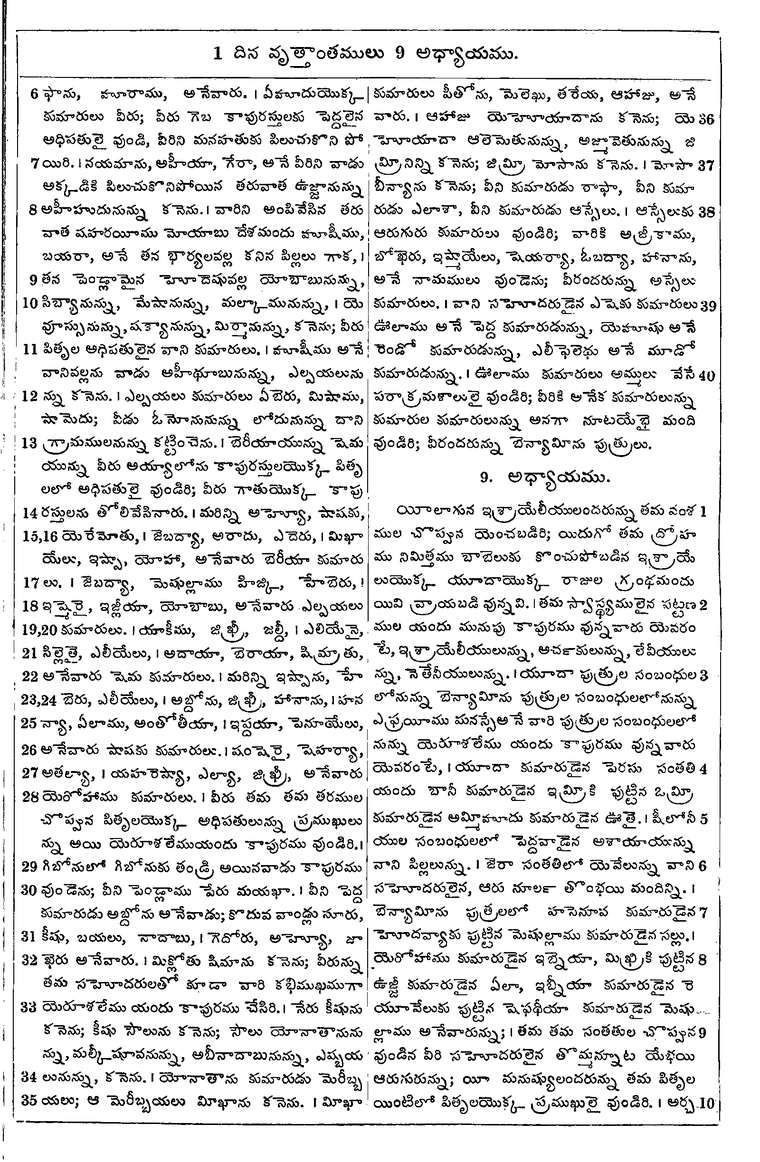 1 దిన వృత్తాంతములు 9 అధ్యాయము.
6 ఫాను, హూరాము, అనేవారు. । ఏహూదుయొక్క
కుమారులు వీరు; వీరు గెబ కాపురస్తులకు పెద్దలైన
అధిపతులై వుండి, వీరిని మనహతుకు పిలుచుకొని పో
7 యిరి. । నయమాను, అహీయా, గేరా, అనే వీరిని వాడు
అక్కడికి పిలుచుకొనిపోయిన తరువాత ఉజ్జానున్ను
8 అహీహుదునున్ను కనెను. । వారిని అంపివేసిన తరు
వాత షహరయీము మోయాబు దేశమందు హూషీము,
బయరా, అనే తన భార్యలవల్ల కనిన పిల్లలు గాక, ।
9 తన పెండ్లామైన హెూదెషువల్ల యోబాబునున్ను,
10 సిబ్యానున్ను, మేషానున్ను, మల్కామునున్ను, । యె
వూస్సునున్ను, షక్యానున్ను, మిర్మానున్ను, కనెను; వీరు
11 పితృల అధిపతులైన వాని కుమారులు. । హూషీము అనే
వానివల్లను వాడు అహీథూబునున్ను, ఎల్పయలును
12 న్ను కనెను. । ఎల్పయలు కుమారులు ఏబెరు, మిషాము,
షామెదు; వీడు ఓనోనునున్ను లోదునున్ను దాని
13 గ్రామములనున్ను కట్టించెను. । బెరీయాయున్ను షెమ
యున్ను వీరు అయ్యాలోను కాపురస్తులయొక్క పితృ
లలో అధిపతులై వుండిరి; వీరు గాతుయొక్క కాపు
14 రస్తులను తోలివేసినారు. । మరిన్ని అహ్యో, షాషకు,
15,16 యెరేమోతు, । జెబద్యా, అరాదు, ఎదెరు, । మిఖా
యేలు, ఇష్పా, యోహా, అనేవారు బెరీయా కుమారు
17 లు. । జెబద్యా, మెషుల్లాము హిజ్కి, హేబెరు, ।
18 ఇష్మెరై, ఇజ్లీయా, యోబాబు, అనేవారు ఎల్పయలు
19,20 కుమారులు. । యాకీము, జిఖ్రీ, జబ్దీ, । ఎలియేనై,
21 సిల్లెతై, ఎలీయేలు, । అదాయా, బెరాయా, షిమ్రాతు,
22 అనేవారు షెమ కుమారులు. । మరిన్ని ఇష్పాను, హే
23,24 బెరు, ఎలీయేలు, । అబ్దోను, జిఖ్రీ, హానాను, । హన
25 న్యా, ఏలాము, అంతోతీయా, । ఇఫ్దయా, పెనూయేలు,
26 అనేవారు షాషకు కుమారులు. । షంషెరై, షెహర్యా,
27 అతల్యా, । యహరెష్యా, ఎల్యా, జిఖ్రీ, అనేవారు
28 యెరోహాము కుమారులు. । వీరు తమ తమ తరముల
చొప్పున పితృలయొక్క అధిపతులున్ను ప్రముఖులు
న్ను అయి యెరూశలేముయందు కాపురము వుండిరి. ।
29 గిబోనులో గిబోనుకు తండ్రి అయినవాడు కాపురము
30 వుండెను; వీని పెండ్లాము పేరు మయఖా. । వీని పెద్ద
కుమారుడు అబ్దోను అనేవాడు; కొదువ వాండ్లు సూరు,
31 కీషు, బయలు, నాదాబు, । గెదోరు, అహ్యో, జా
32 ఖెరు అనేవారు. । మిక్లోతు షిమాను కనెను; వీరున్ను
తమ సహెూదరులతో కూడా వారి కభిముఖముగా
33 యెరూశలేము యందు కాపురము చేసిరి. । నేరు కీషును
కనెను; కీషు సౌలును కనెను; సౌలు యోనాతానును
న్ను, మల్కీషూవనున్ను, అబీనాదాబునున్ను, ఎష్బయ
34 లునున్ను, కనెను. । యోనాతాను కుమారుడు మెరీబ్బ
35 యలు; ఆ మెరీబ్బయలు మీఖాను కనెను. । మీఖా
కుమారులు పీతోను, మెలెఖు, తరేయ, ఆహాజు, అనే
వారు. । ఆహాజు యెహెూయాదాను కనెను; యె 36
హెూయాదా ఆలెమెతునున్ను, అజ్మావెతునున్ను జి
మ్రీనిన్ని కనెను; జిమ్రీ మోసాను కనెను. । మోసా 37
బీన్యాను కనెను; వీని కుమారుడు రాఫా, వీని కుమా
రుడు ఎలాశా, వీని కుమారుడు ఆస్సేలు. । ఆస్సేలుకు 38
ఆరుగురు కుమారులు వుండిరి; వారికి అజ్రీకాము,
బోఖెరు, ఇష్మాయేలు, షెయర్యా, ఓబద్యా, హానాను,
అనే నామములు వుండెను; వీరందరున్ను అస్సేలు
కుమారులు. । వాని సహెూదరుడైన ఎషెకు కుమారులు 39
ఊలాము అనే పెద్ద కుమారుడున్ను, యెహూషు అనే
రెండో కుమారుడున్ను, ఎలీఫెలెథు అనే మూడో
కుమారుడున్ను. । ఊలాము కుమారులు అమ్ములు వేసే 40
పరాక్రమశాలులై వుండిరి; వీరికి అనేక కుమారులున్ను
కుమారుల కుమారులున్ను అనగా నూటయేభై మంది
వుండిరి; వీరందరున్ను బెన్యామీను పుత్రులు.
9. అధ్యాయము.
యీలాగున ఇశ్రాయేలీయులందరున్ను తమ వంశ 1
ముల చొప్పున యెంచబడిరి; యిదుగో తమ ద్రోహ
ము నిమిత్తము బాబెలుకు కొంచుపోబడిన ఇశ్రాయే
లుయొక్క యూదాయొక్క రాజుల గ్రంథమందు
యివి వ్రాయబడి వున్నవి. । తమ స్వాస్థ్యములైన పట్టణ 2
ముల యందు మునుపు కాపురము వున్నవారు యెవరం
టే, ఇశ్రాయేలీయులున్ను, అర్చకులున్ను, లేవీయులు
న్ను, నెతేనీయులున్ను. । యూదా పుత్రుల సంబంధుల 3
లోనున్ను బెన్యామీను పుత్రుల సంబంధులలోనున్ను
ఎఫ్రయీము మనస్సే అనే వారి పుత్రుల సంబంధులలో
నున్ను యెరూశలేము యందు కాపురము వున్నవారు
యెవరంటే, । యూదా కుమారుడైన పెరసు సంతతి 4
యందు బానీ కుమారుడైన ఇమ్రికి పుట్టిన ఒమ్రి
కుమారుడైన అమ్మిహూదు కుమారుడైన ఊతై. । షీలోనీ 5
యుల సంబంధులలో పెద్దవాడైన అశాయాయున్ను
వాని పిల్లలున్ను. । జెరా సంతతిలో యేవేలున్ను వాని 6
సహెూదరులైన, ఆరు నూలఁ తొంభయి మందిన్ని. ।
బెన్యామీను పుత్రులలో హసెనూవ కుమారుడైన 7
హెూదవ్యాకు పుట్టిన మెషుల్లాము కుమారుడైన సల్లు. ।
యెరోహాము కుమారుడైన ఇబ్నెయా, మిఖ్రికి పుట్టిన 8
ఉజ్జీ కుమారుడైన ఏలా, ఇబ్నీయా కుమారుడైన రె
యూవేలుకు పుట్టిన షెఫథీయా కుమారుడైన మెషు
ల్లాము అనేవారున్ను; । తమ తమ సంతతుల చొప్పున 9
వుండిన వీరి సహెూదరులైన తొమ్మన్నూట యేభయి
ఆరుగురున్ను; యీ మనుష్యులందరున్ను తమ పితృల
యింటిలో పితృలయొక్క ప్రముఖులై వుండిరి. । అర్చ 10